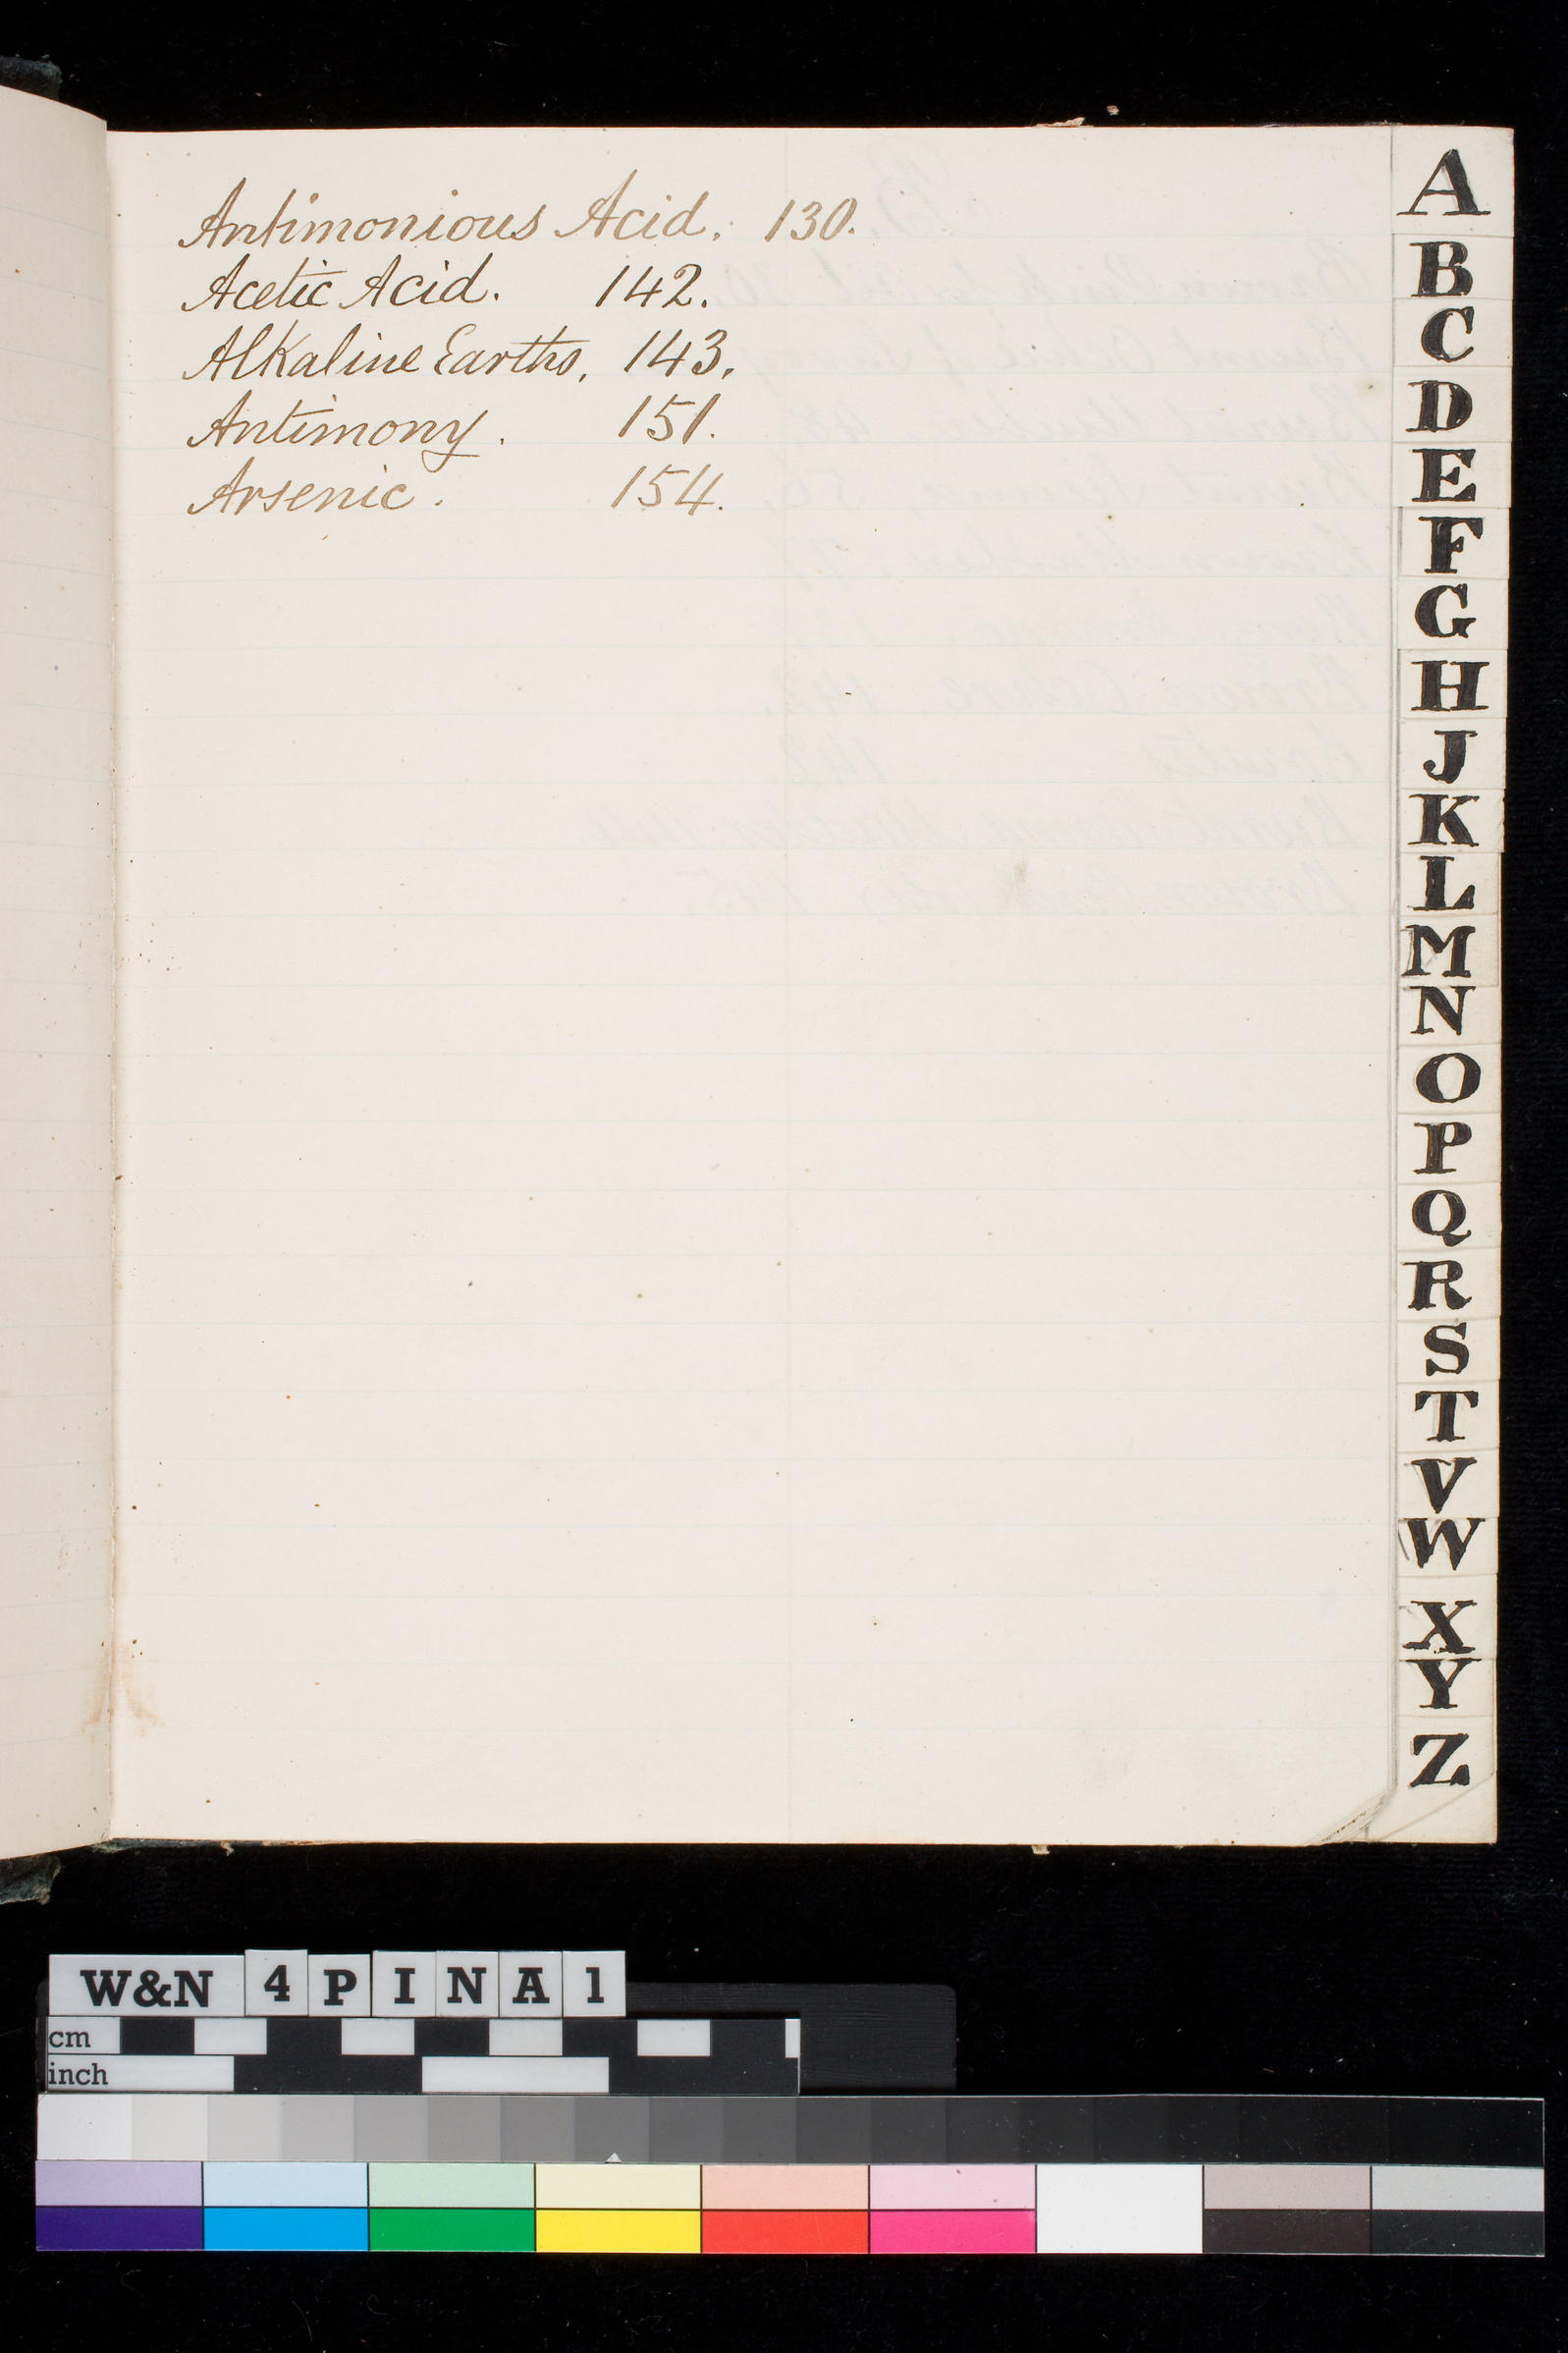 Antimonious Acid. 130.
Acetic Acid. 142.
Alkaline Earths, 143.
Antimony. 151.
Arsenic. 154.
A
B
C
D
E
F
G
H
J
K
L
M
N
O
P
Q
R
S
T
V
W
X
Y
Z
W&N 4PINA1
cm
inch